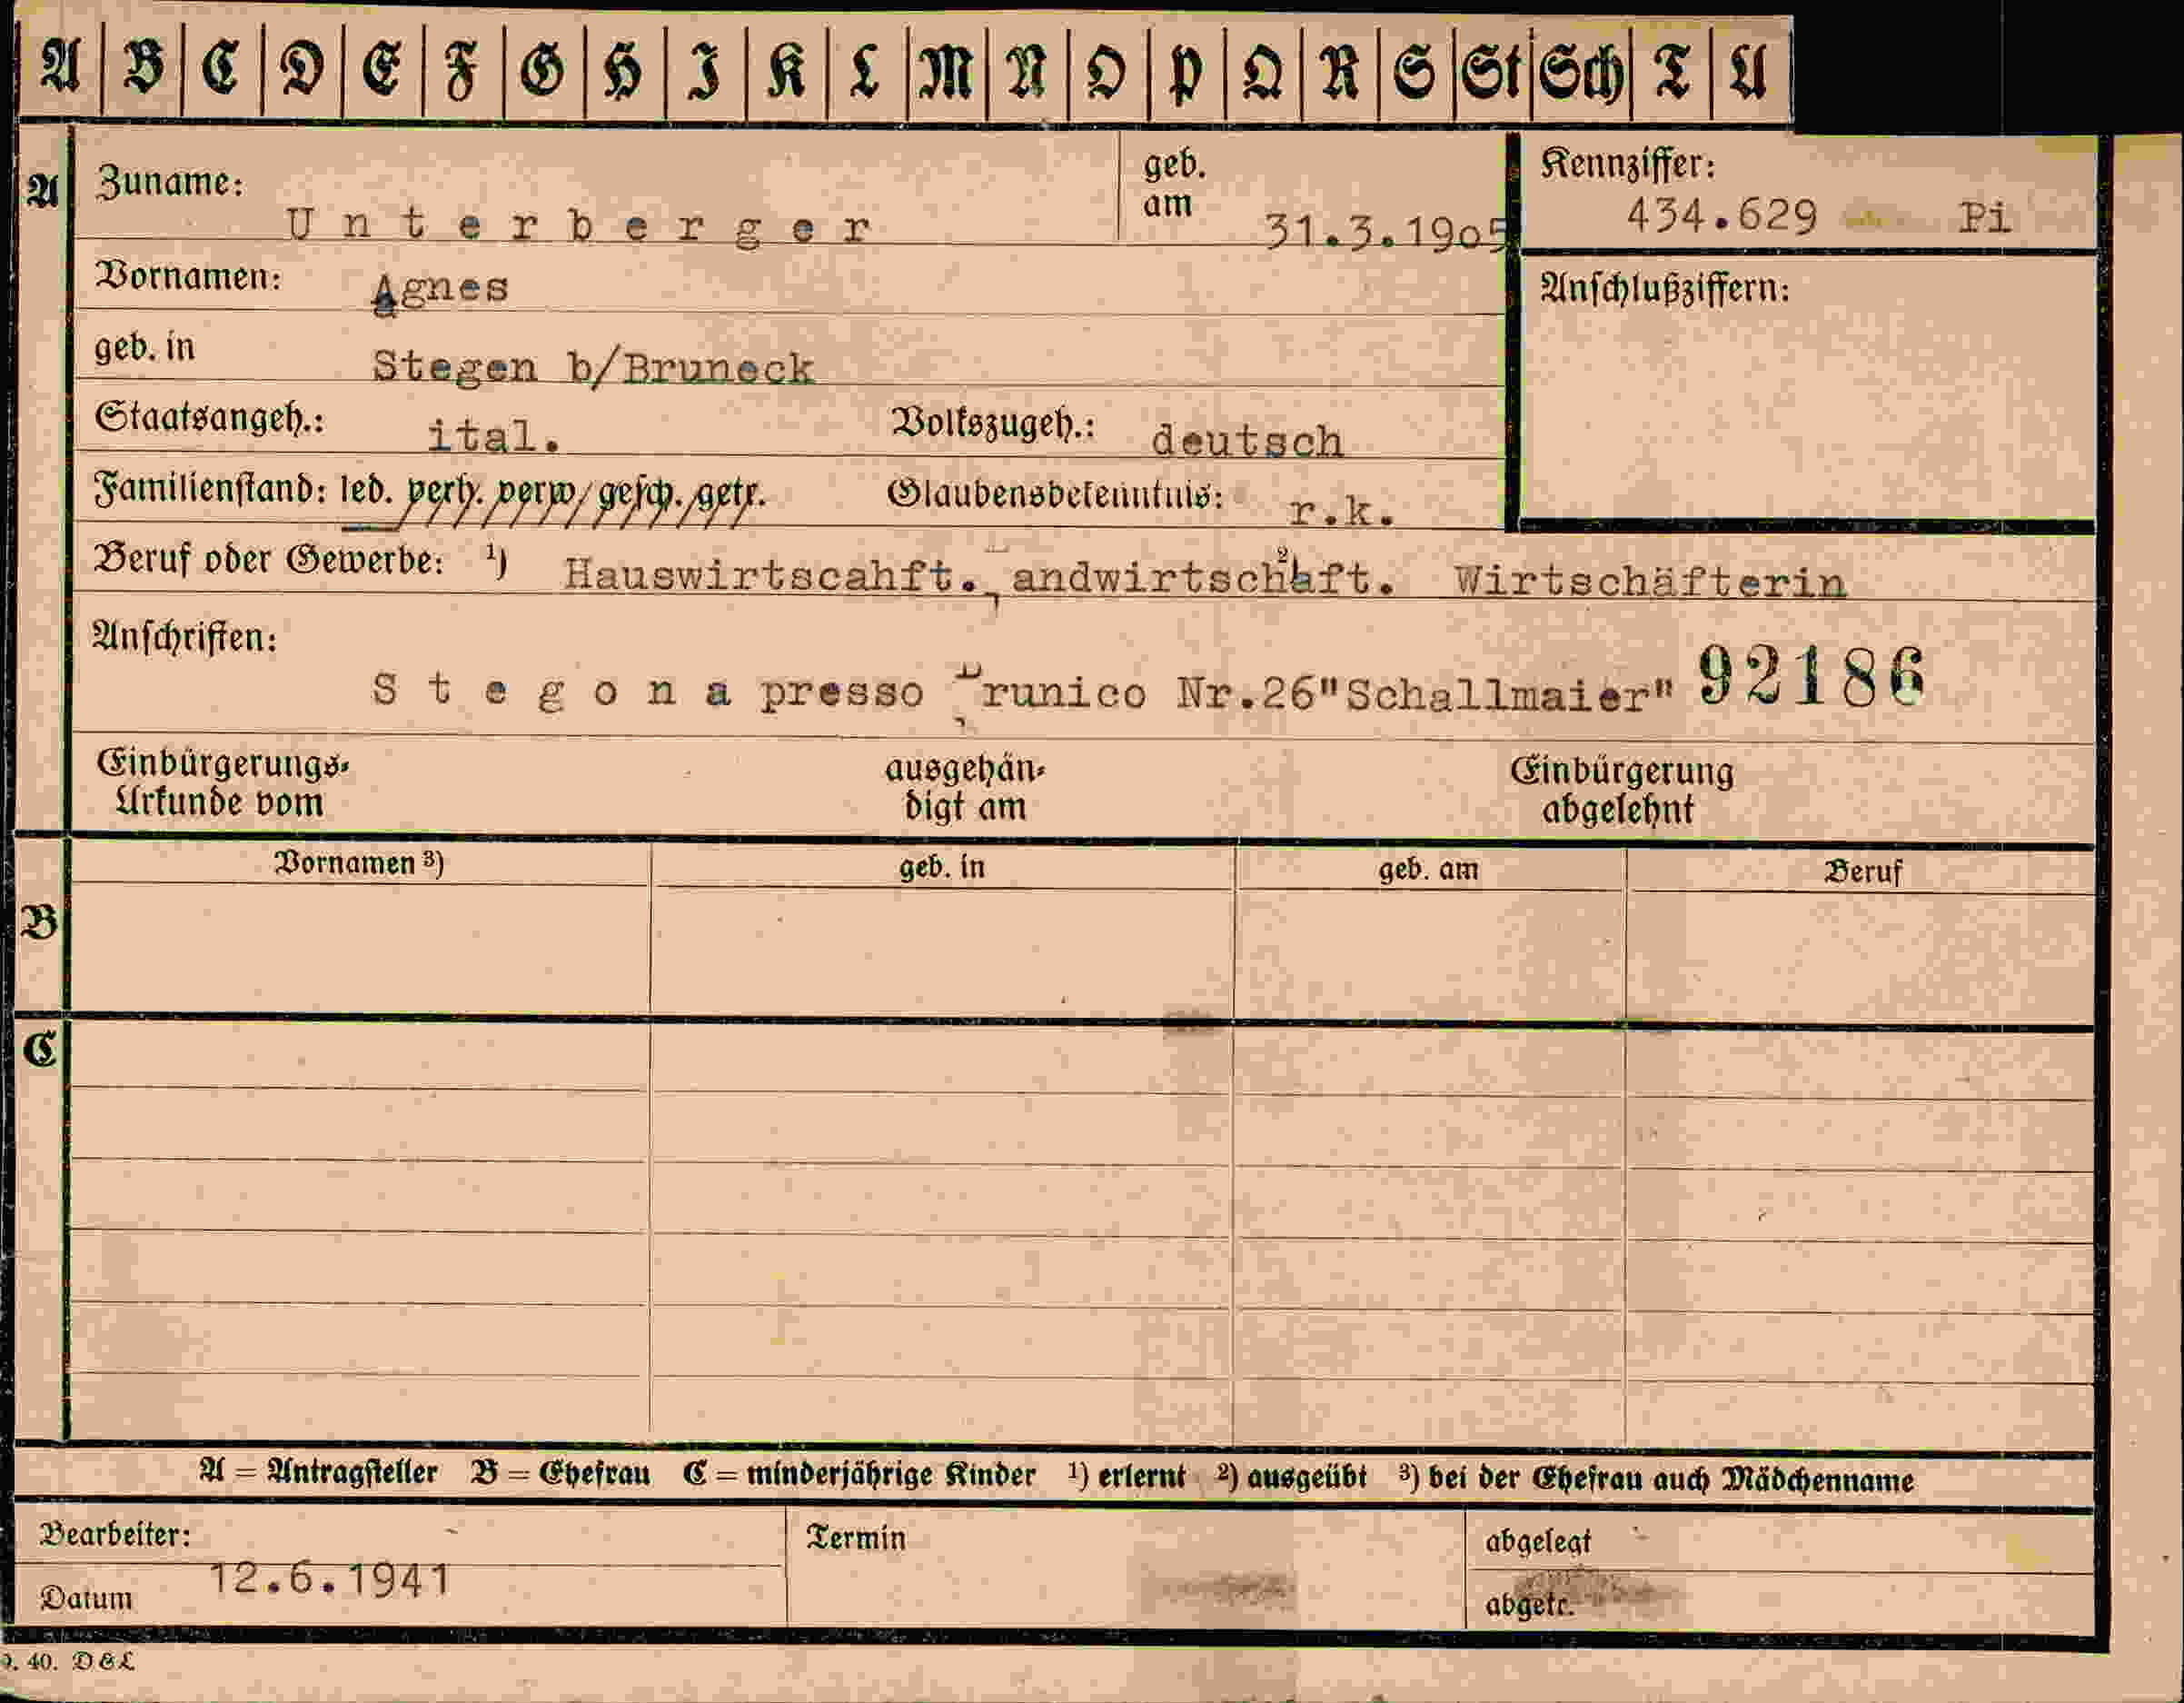 A B C D E F G H I K L M N O P Q R S St Sch T U
A Zuname: U n t e r b e r g e r geb. am 31.3.1905 Kennziffer: 434.629 Pi
Vornamen: Agnes Anschlußziffern:
geb. in Stegen b/Bruneck
Staatsangeh.: ital. Volkszugeh.: deutsch
Familienstand: led. verh. verw. gesch. getr. Glaubensbekenntnis: r.k.
Beruf oder Gewerbe: 1) Hauswirtscahft. Landwirtschaft. 2) Wirtschäfterin
Anschriften:
S t e g o n a presso Brunico Nr.26"Schallmaier" 92186
Einbürgerungs- Urkunde vom ausgehän- digt am Einbürgerung abgelehnt
Vornamen 3) geb. in geb. am Beruf
B
C
A = Antragsteller B = Ehefrau C = minderjährige Kinder 1) erlernt 2) ausgeübt 3) bei der Ehefrau auch Mädchenname
Bearbeiter: Termin abgelegt
Datum 12.6.1941 abgetr.
40. D&L